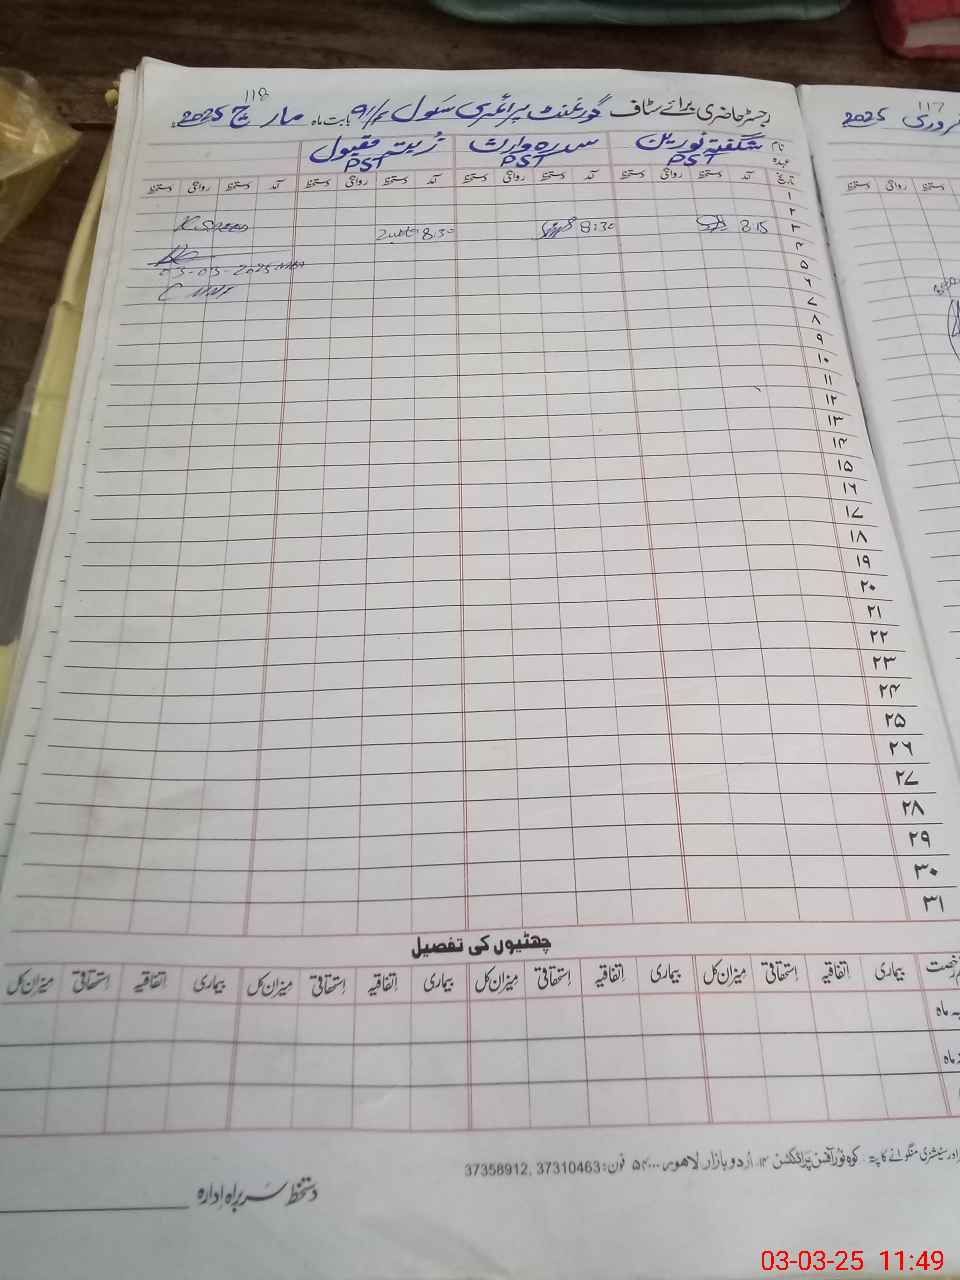 118
رجسٹر حاضری برائے سٹاف گورنمنٹ پرائمری سکول بابت ماہ مارچ 2025ء
نام شگفتہ نورین سدرہ وارث زینت مقبول
عہدہ PST PST PST
تاریخ آمد دستخط روانگی دستخط آمد دستخط روانگی دستخط آمد دستخط روانگی دستخط آمد دستخط روانگی دستخط
۱
۲
۳ 8:15 8:30 8:30
۴
۵ 03-03-2025
۶
۷
۸
۹
۱۰
۱۱
۱۲
۱۳
۱۴
۱۵
۱۶
۱۷
۱۸
۱۹
۲۰
۲۱
۲۲
۲۳
۲۴
۲۵
۲۶
۲۷
۲۸
۲۹
۳۰
۳۱
چھٹیوں کی تفصیل
بیماری اتفاقیہ استحقاقی میزان کل بیماری اتفاقیہ استحقاقی میزان کل بیماری اتفاقیہ استحقاقی میزان کل بیماری اتفاقیہ استحقاقی میزان کل
ماہ
ماہ
اور سٹیشنری منگوانے کا پتہ۔ کوہ نور آفسٹ پرنٹنگ اردو بازار لاہور فون: 37310463 ,37358912
دستخط سربراہ ادارہ
117
فروری 2025
دستخط روانگی دستخط
03-03-25 11:49